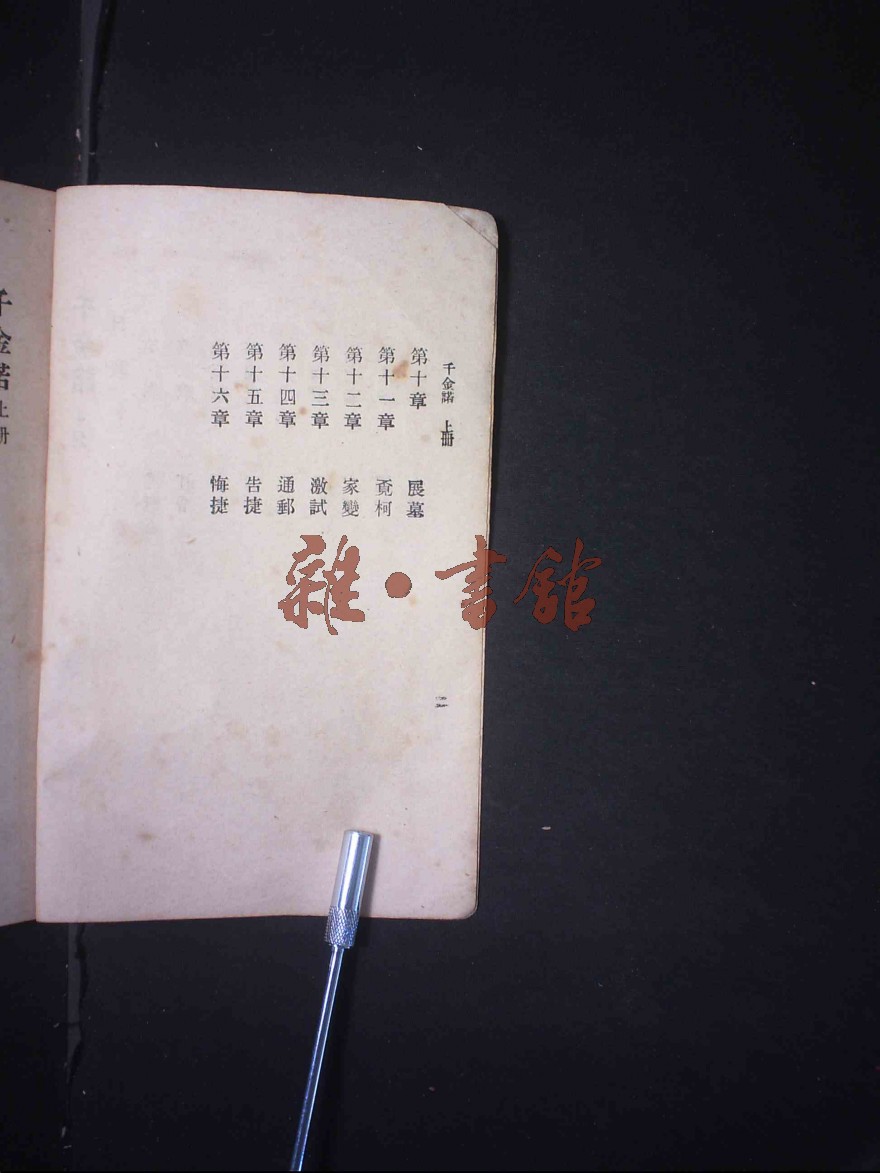 千金諾 上冊
第十章 展墓
第十一章 覓柯
第十二章 家變
第十三章 激試
第十四章 通郵
第十五章 告捷
第十六章 悔捷
二
千金諾上冊
雜·書館